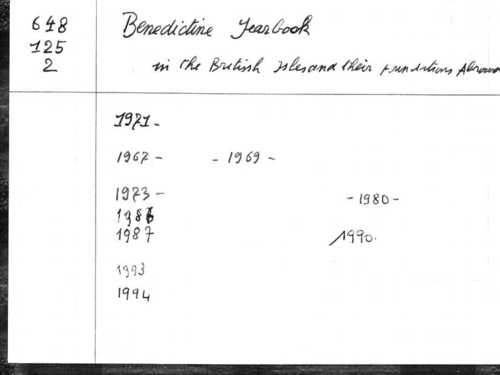 648 Benedictine Yearbook
125
2 in the British Isles and their fundations
1971-
1967 - - 1969 -
1973 - - 1980 -
1986
1987 1990.
1993
1994